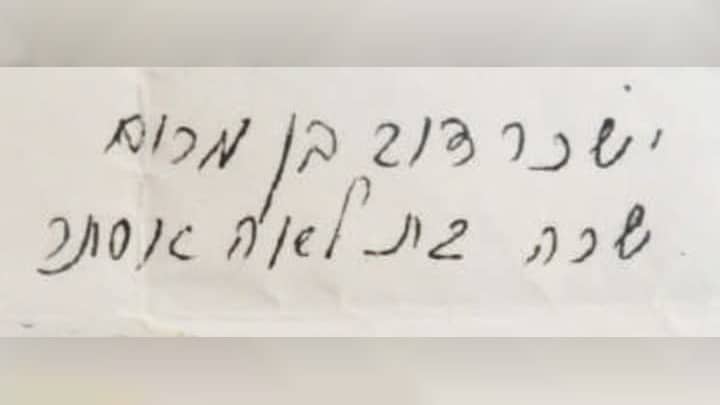 ישכר דוב בן מרים
שרה בת לאה אסתר